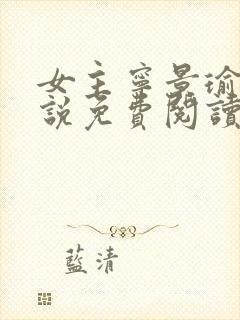 女主寧景瑜
說免費閱讀
藍清